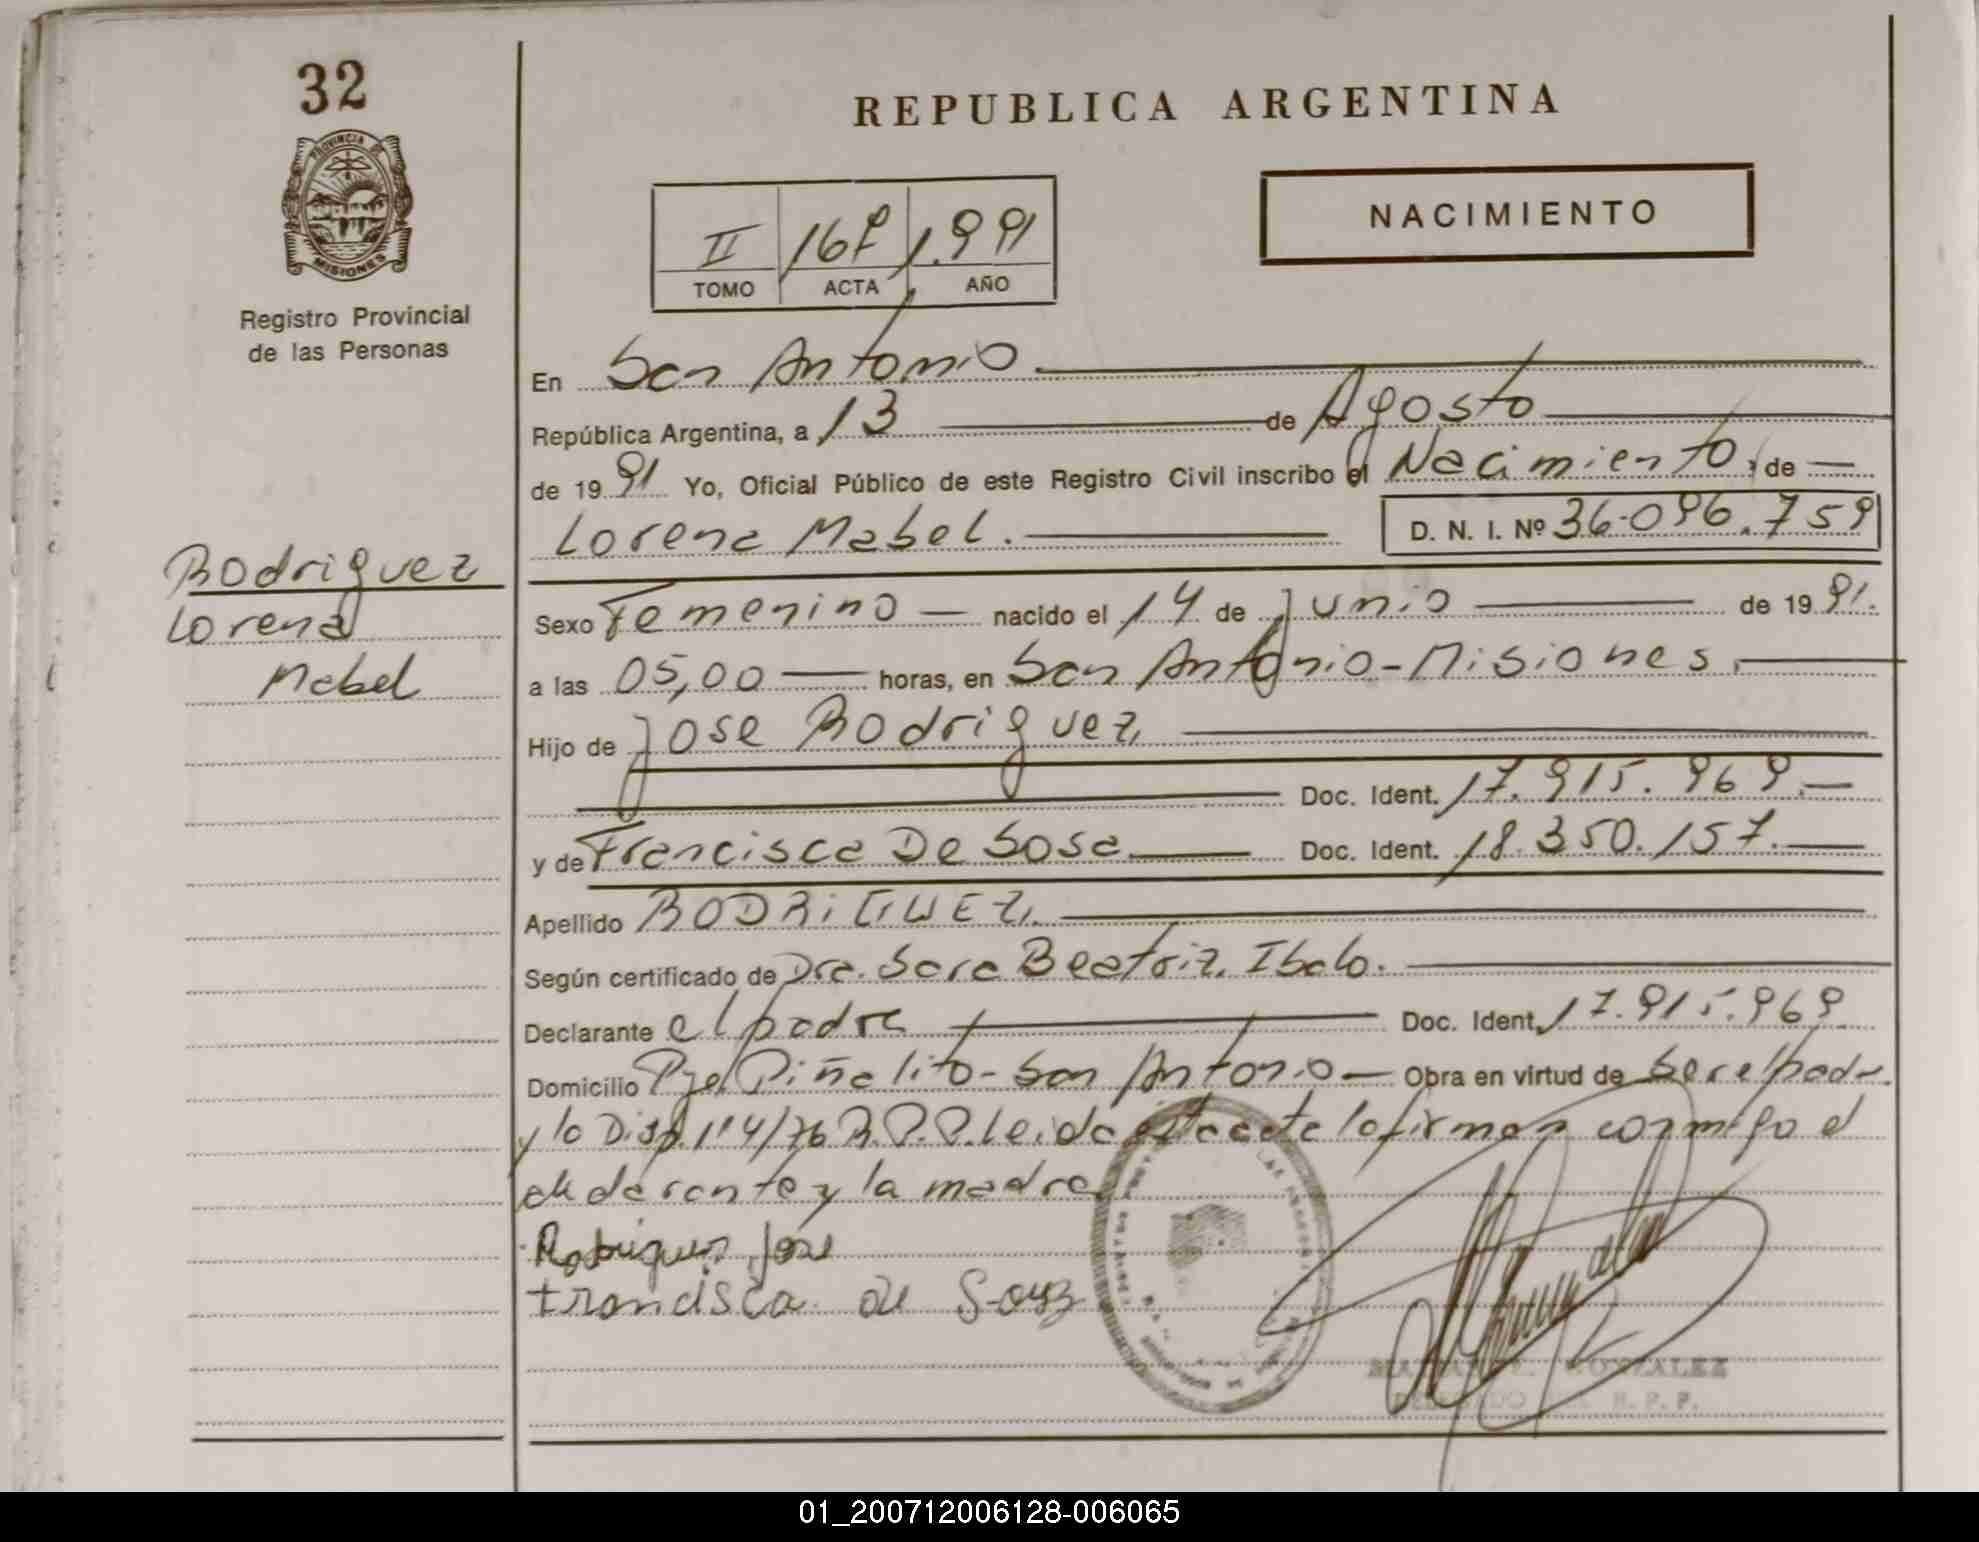 32
PROVINCIA DE
MISIONES
Registro Provincial
de las Personas
REPUBLICA ARGENTINA
NACIMIENTO
II 1.991
TOMO ACTA AÑO
En San Antonio
República Argentina, a 13 de Agosto
de 1991 Yo, Oficial Público de este Registro Civil inscribo el Nacimiento, de
Lorena Mabel. D. N. I. Nº 36.096.759
Rodriguez
Lorena
Mabel
Sexo Femenino nacido el 14 de junio de 1991.
a las 05,00 horas, en San Antonio-Misiones.
Hijo de Jose Rodriguez,
Doc. Ident. 17.915.969.
y de Francisca De Sosa Doc. Ident. 18.350.157.
Apellido RODRiGUEZ.
Según certificado de Dra. Sara Beatriz Ibalo.
Declarante el padre Doc. Ident. 17.915.969.
Domicilio Pje Piñalito-San Antonio Obra en virtud de Ser el padre
y la Disp. 4/76 R.P.P. Leida esta acta la firman conmigo el
declarante y la madre
Rodriguez Jose
francisca de
GONZALEZ
R. P. P.
01_200712006128-006065